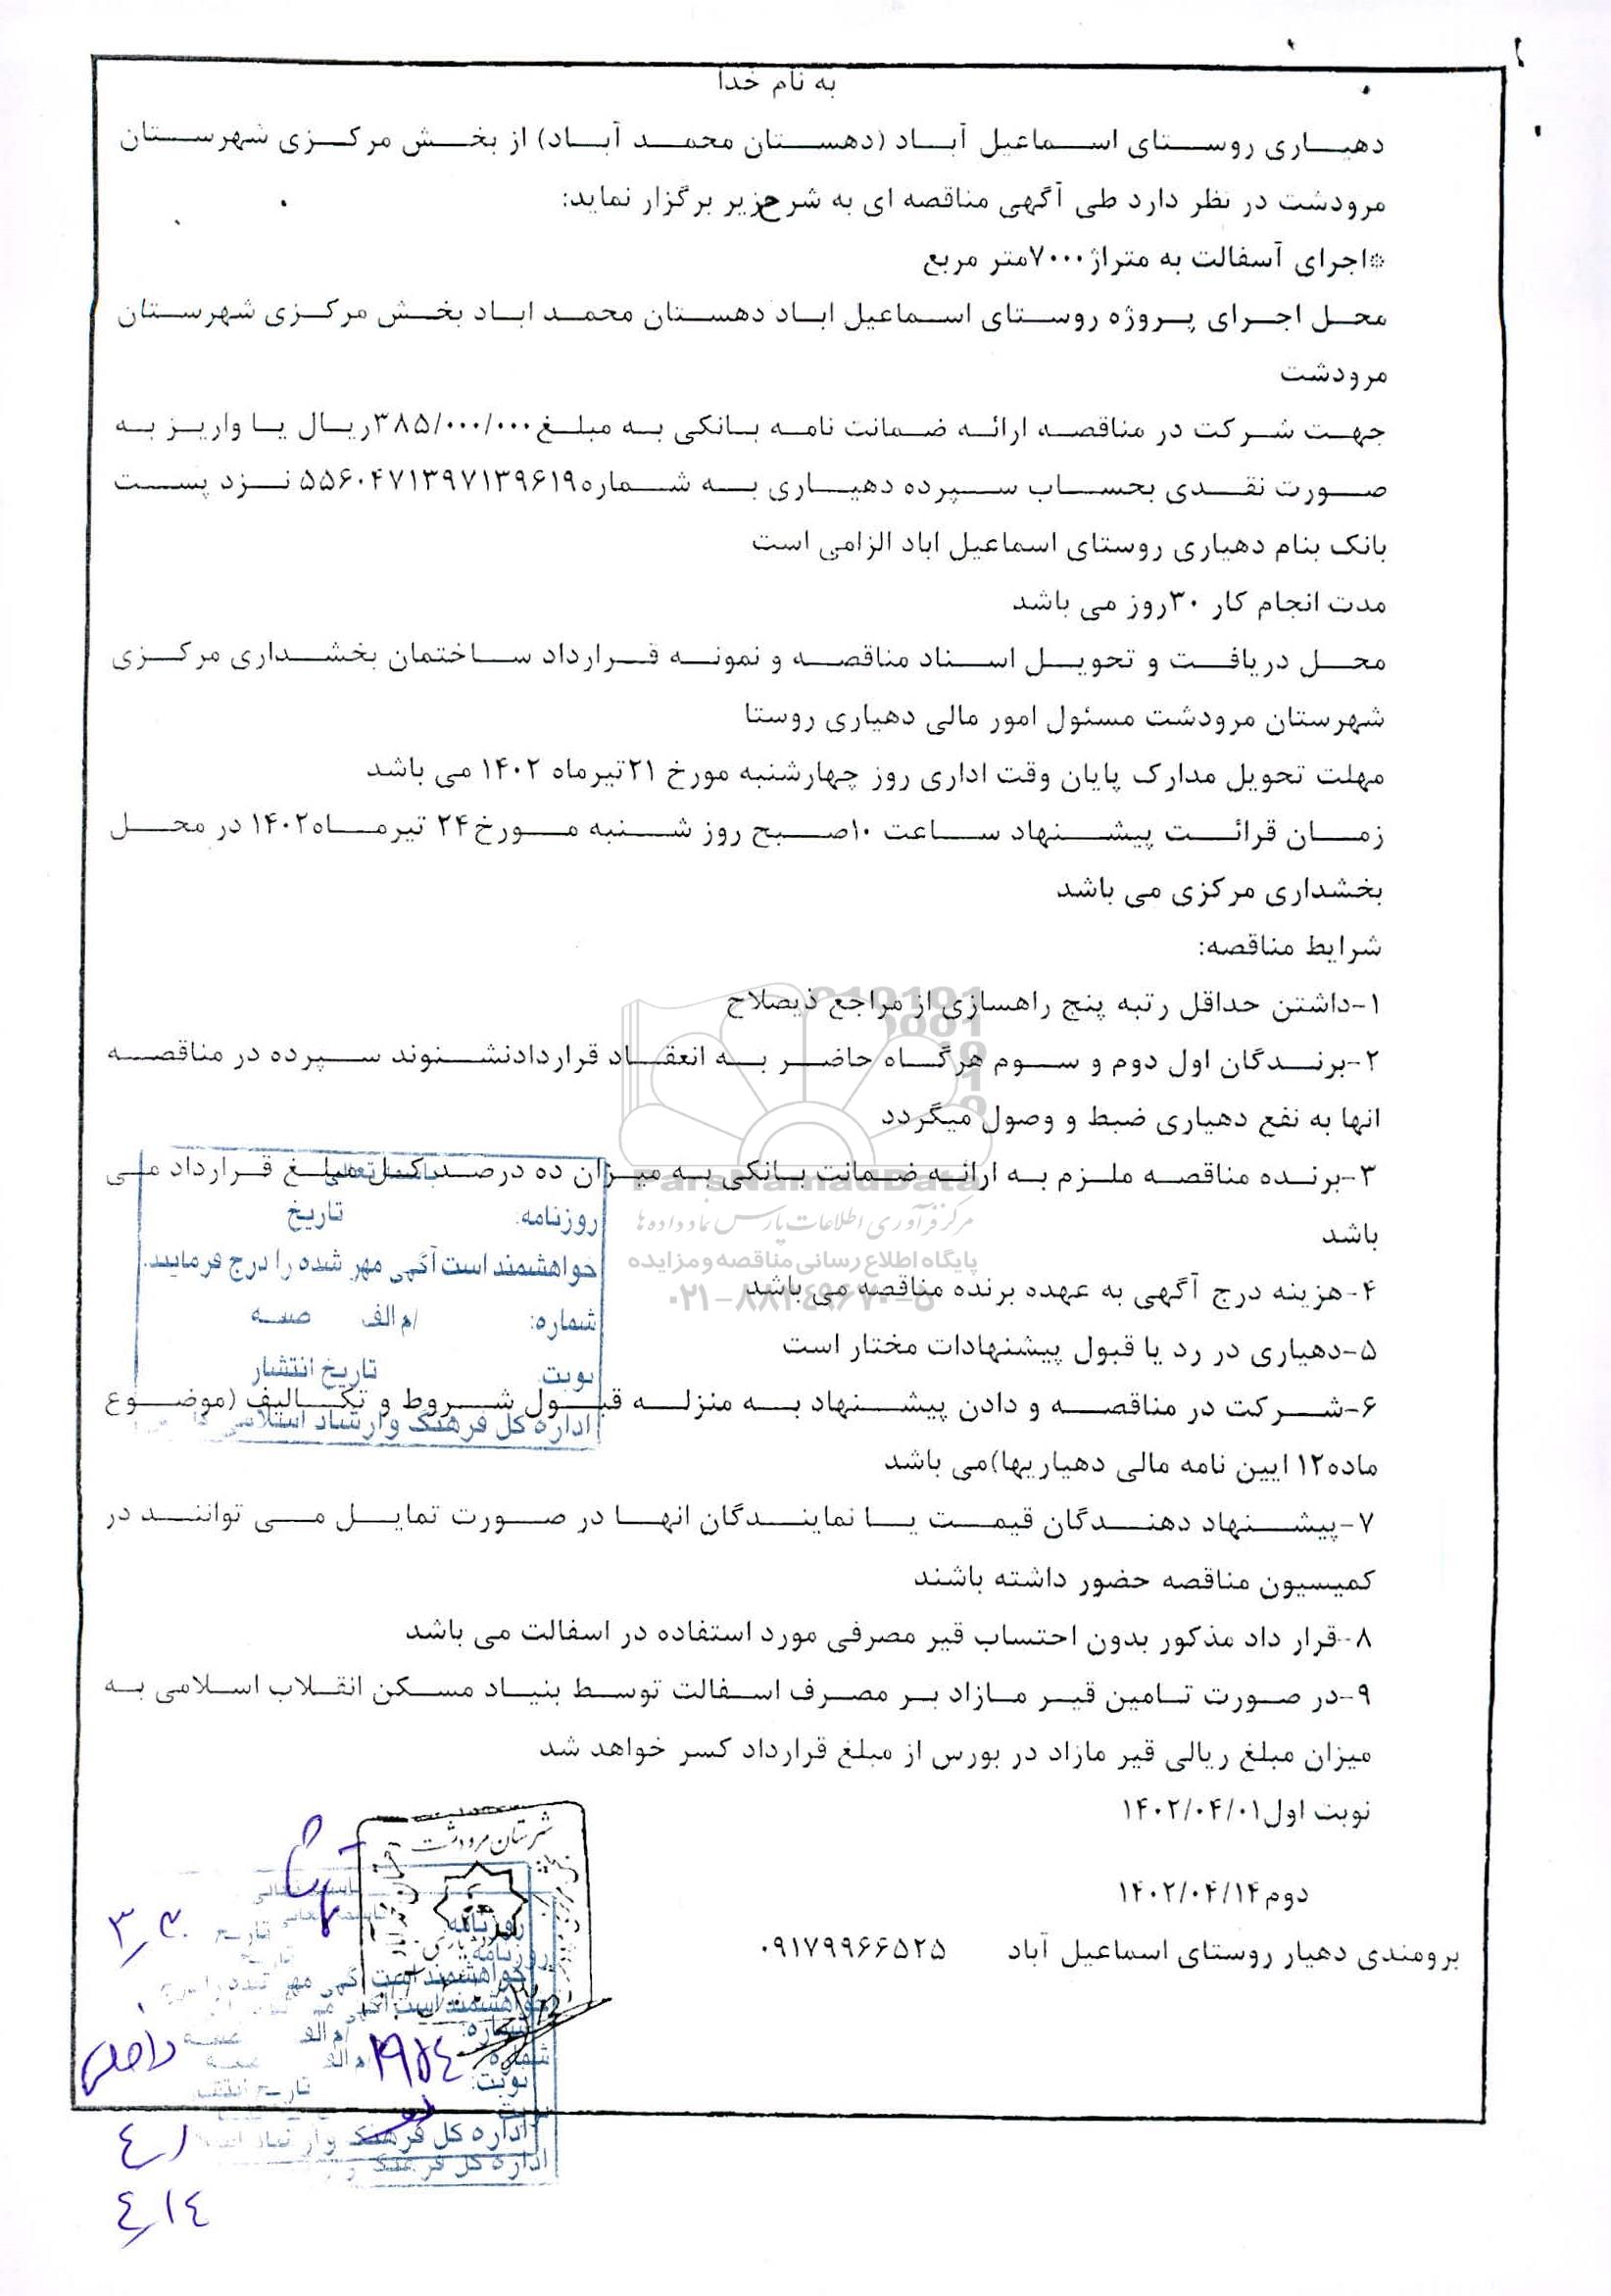 به نام خدا
دهیاری روستای اسماعیل آباد (دهستان محمد آباد) از بخش مرکزی شهرستان
مرودشت در نظر دارد طی آگهی مناقصه ای به شرح زیر برگزار نماید:
*اجرای آسفالت به متراژ ۷۰۰۰متر مربع
محل اجرای پروژه روستای اسماعیل اباد دهستان محمد اباد بخش مرکزی شهرستان
مرودشت
جهت شرکت در مناقصه ارائه ضمانت نامه بانکی به مبلغ ۳۸۵/۰۰۰/۰۰۰ریال یا واریز به
صورت نقدی بحساب سپرده دهیاری به شماره۵۵۶۰۴۷۱۳۹۷۱۳۹۶۱۹ نزد پست
بانک بنام دهیاری روستای اسماعیل اباد الزامی است
مدت انجام کار ۳۰روز می باشد
محل دریافت و تحویل اسناد مناقصه و نمونه قرارداد ساختمان بخشداری مرکزی
شهرستان مرودشت مسئول امور مالی دهیاری روستا
مهلت تحویل مدارک پایان وقت اداری روز چهارشنبه مورخ ۲۱تیرماه ۱۴۰۲ می باشد
زمان قرائت پیشنهاد ساعت ۱۰صبح روز شنبه مورخ۲۴ تیرماه۱۴۰۲ در محل
بخشداری مرکزی می باشد
شرایط مناقصه:
۱-داشتن حداقل رتبه پنج راهسازی از مراجع ذیصلاح
۲-برندگان اول دوم و سوم هرگاه حاضر به انعقاد قراردادنشنوند سپرده در مناقصه
انها به نفع دهیاری ضبط و وصول میگردد
۳-برنده مناقصه ملزم به ارائه ضمانت بانکی به میزان ده درصد کل مبلغ قرارداد می
باشد
۴-هزینه درج آگهی به عهده برنده مناقصه می باشد
۵-دهیاری در رد یا قبول پیشنهادات مختار است
۶-شرکت در مناقصه و دادن پیشنهاد به منزله قبول شروط و تکالیف (موضوع
ماده۱۲ ایین نامه مالی دهیاریها)می باشد
۷-پیشنهاد دهندگان قیمت یا نمایندگان انها در صورت تمایل می توانند در
کمیسیون مناقصه حضور داشته باشند
۸-قرار داد مذکور بدون احتساب قیر مصرفی مورد استفاده در اسفالت می باشد
۹-در صورت تامین قیر مازاد بر مصرف اسفالت توسط بنیاد مسکن انقلاب اسلامی به
میزان مبلغ ریالی قیر مازاد در بورس از مبلغ قرارداد کسر خواهد شد
نوبت اول۱۴۰۲/۰۴/۰۱
دوم۱۴۰۲/۰۴/۱۴
برومندی دهیار روستای اسماعیل آباد ۰۹۱۷۹۹۶۶۵۲۵
باسمه تعالی
روزنامه: تاریخ
خواهشمند است آگهی مهر شده را درج فرمایید.
شماره: /م الف
نوبت: تاریخ انتشار
اداره کل فرهنگ و ارشاد اسلامی
ParsNamadData
مرکز فرآوری اطلاعات پارس نماد داده ها
پایگاه اطلاع رسانی مناقصه و مزایده
۰۲۱-۸۸۳۴۹۶۷۰-۵
شهرستان مرودشت
روزنامه:
خواهشمند است آگهی مهر شده را
شماره: /م الف
نوبت:
اداره کل فرهنگ و ارشاد
داخلی
۴/۱
۴/۱۴